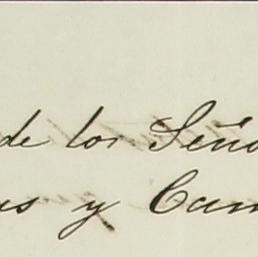 de los Seño
us y Cam